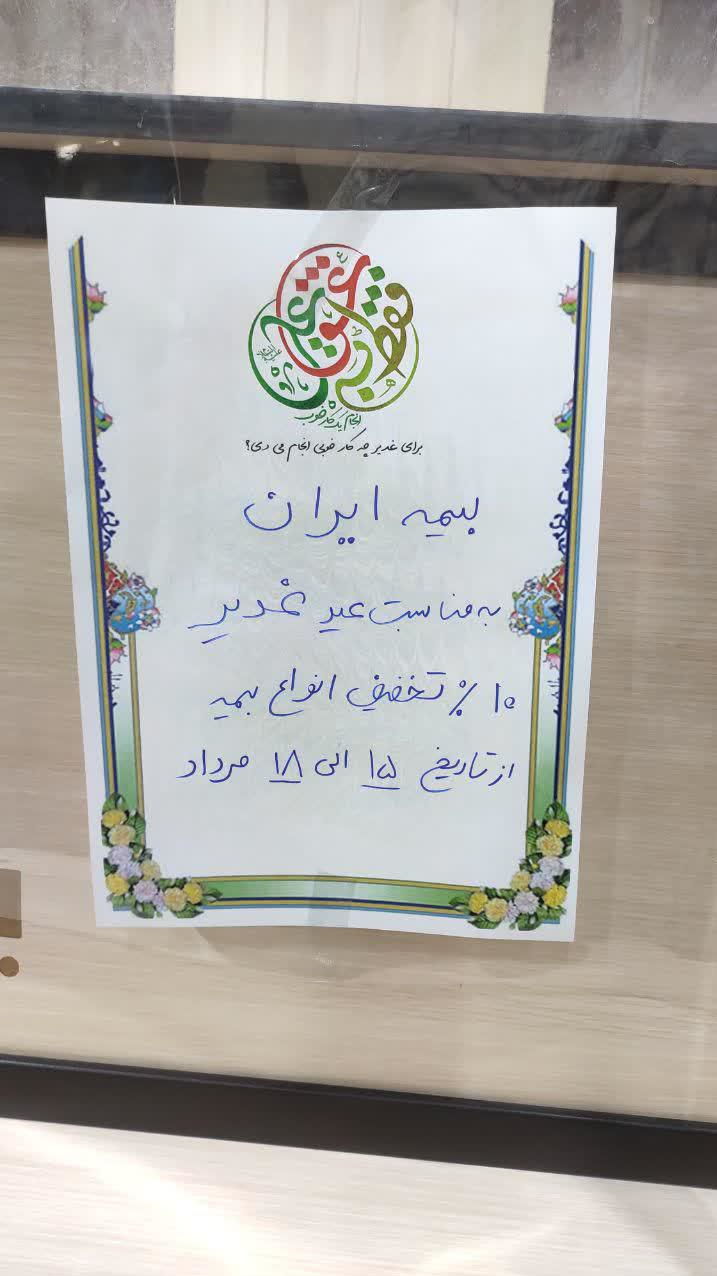 فقط به عشق علی
علیه السلام
انجام یک کار خوب
برای غدیر چه کار خوبی انجام می دی؟
بیمه ایران
به مناسبت عید غدیر
۱۰٪ تخفیف انواع بیمه
از تاریخ ۱۵ الی ۱۸ مرداد